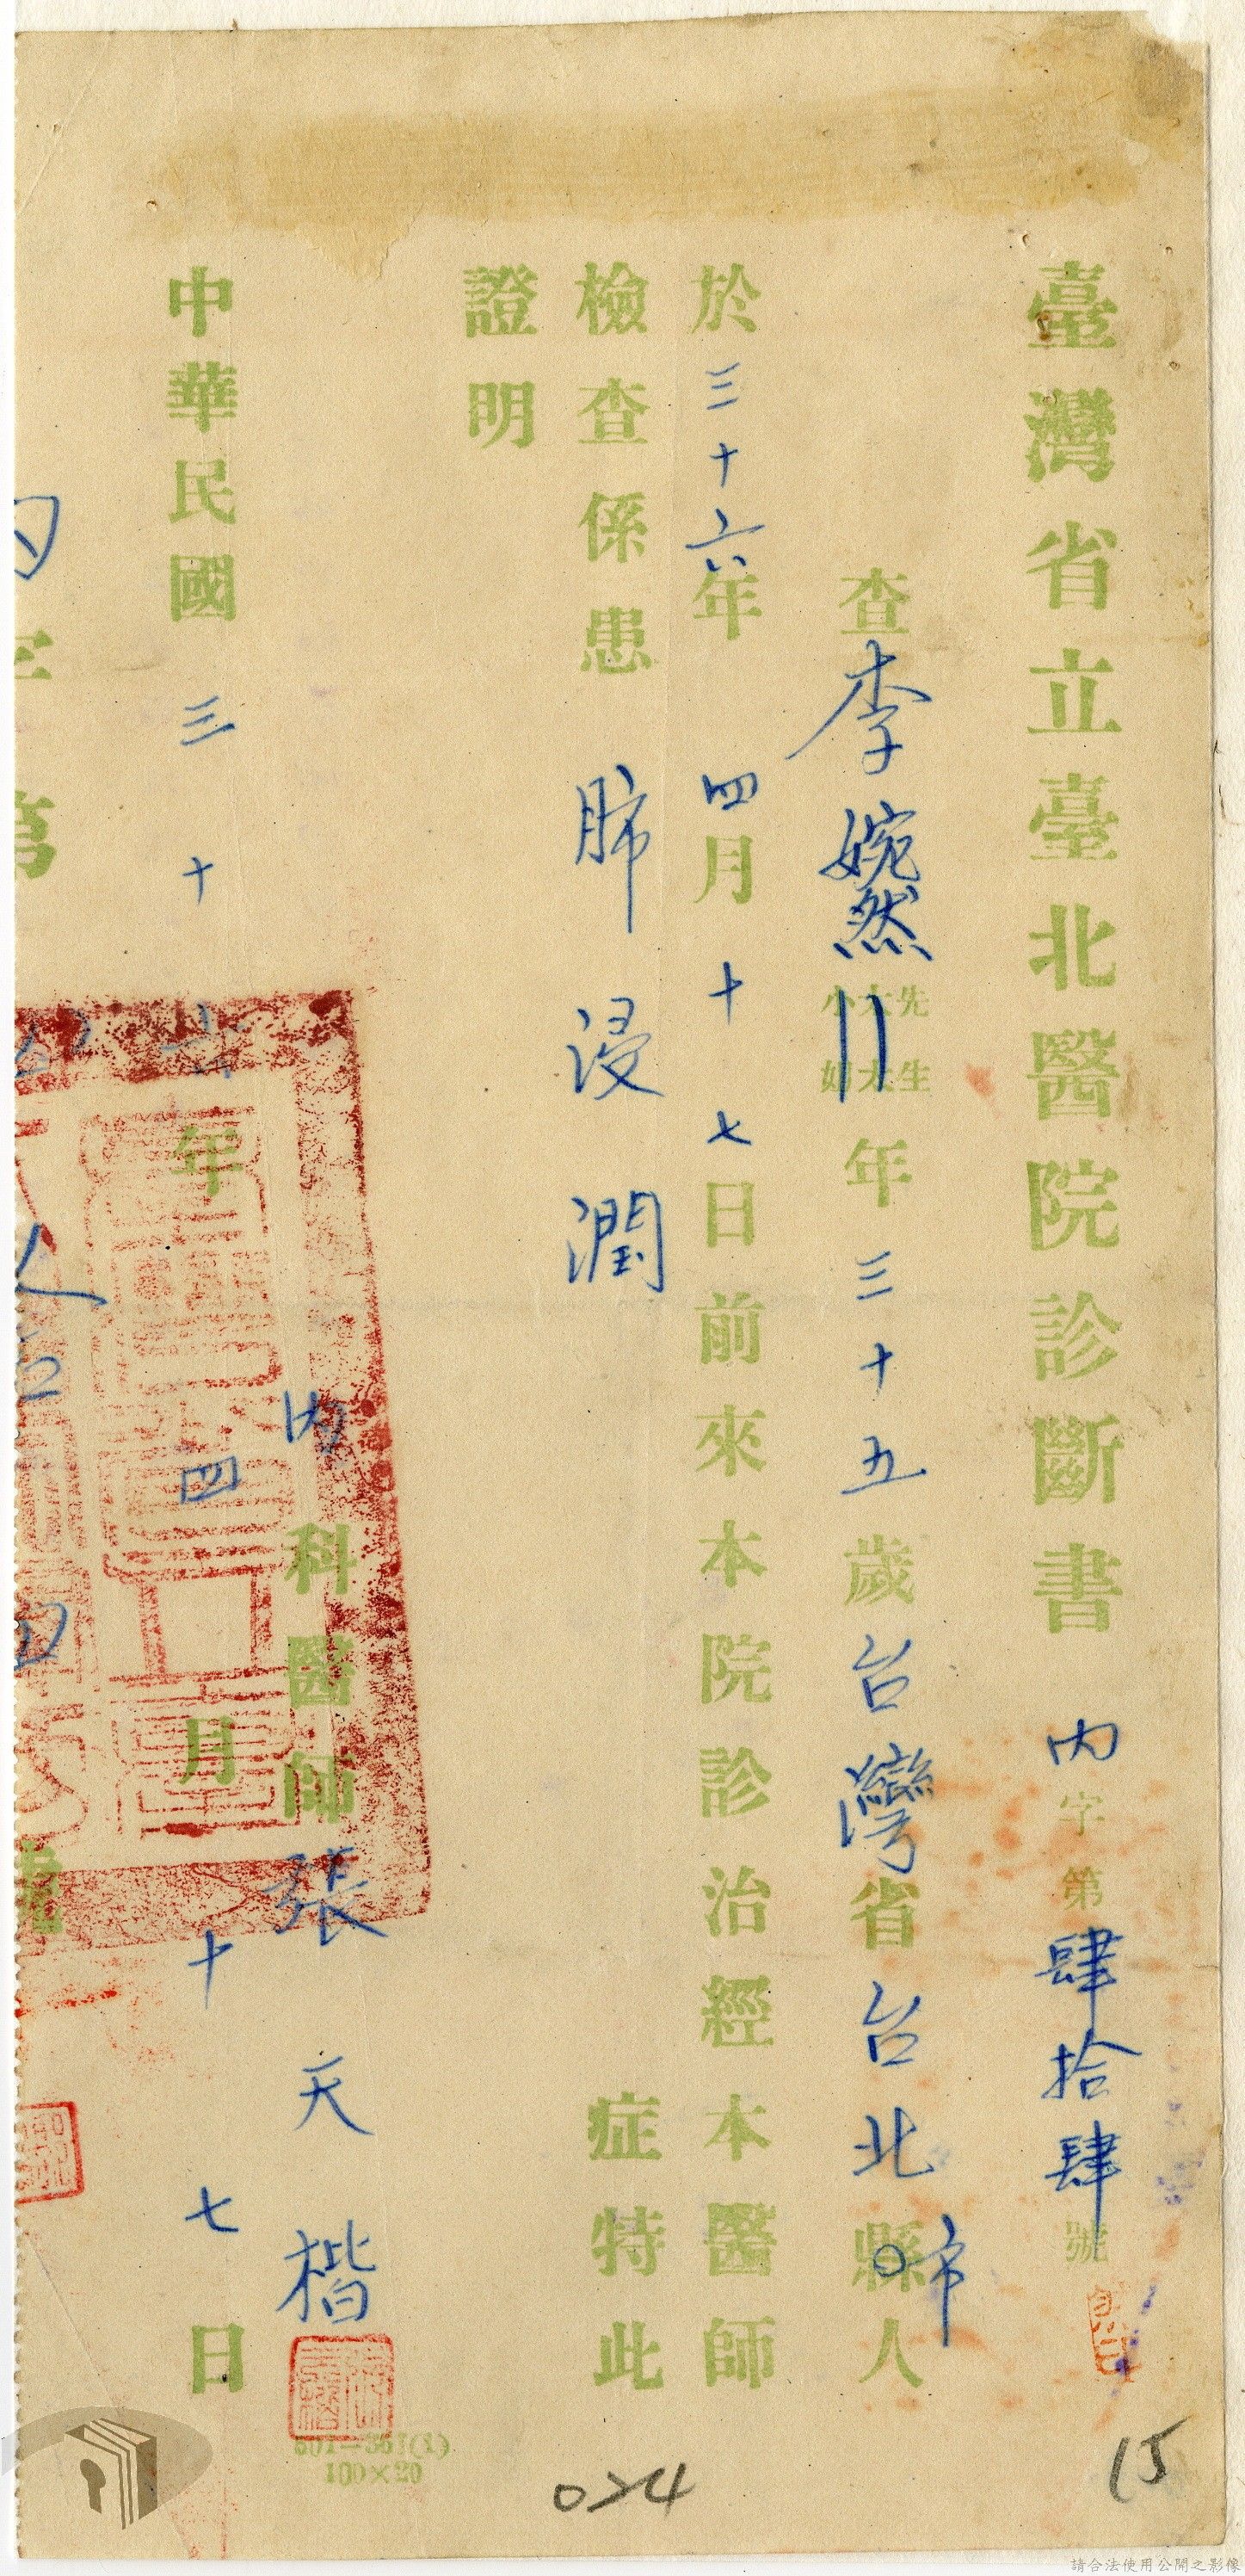 臺灣省立臺北醫院診斷書 內字第肆拾肆號
查李婉然先生太太小姐年三十五歲台灣省台北縣市人
於三十六年四月十七日前來本院診治經本醫師
檢查係患肺浸潤症特此
證明
內科醫師張天楷
中華民國三十六年四月十七日
501—357(1)
100×20
024
15
請合法使用公開之影像